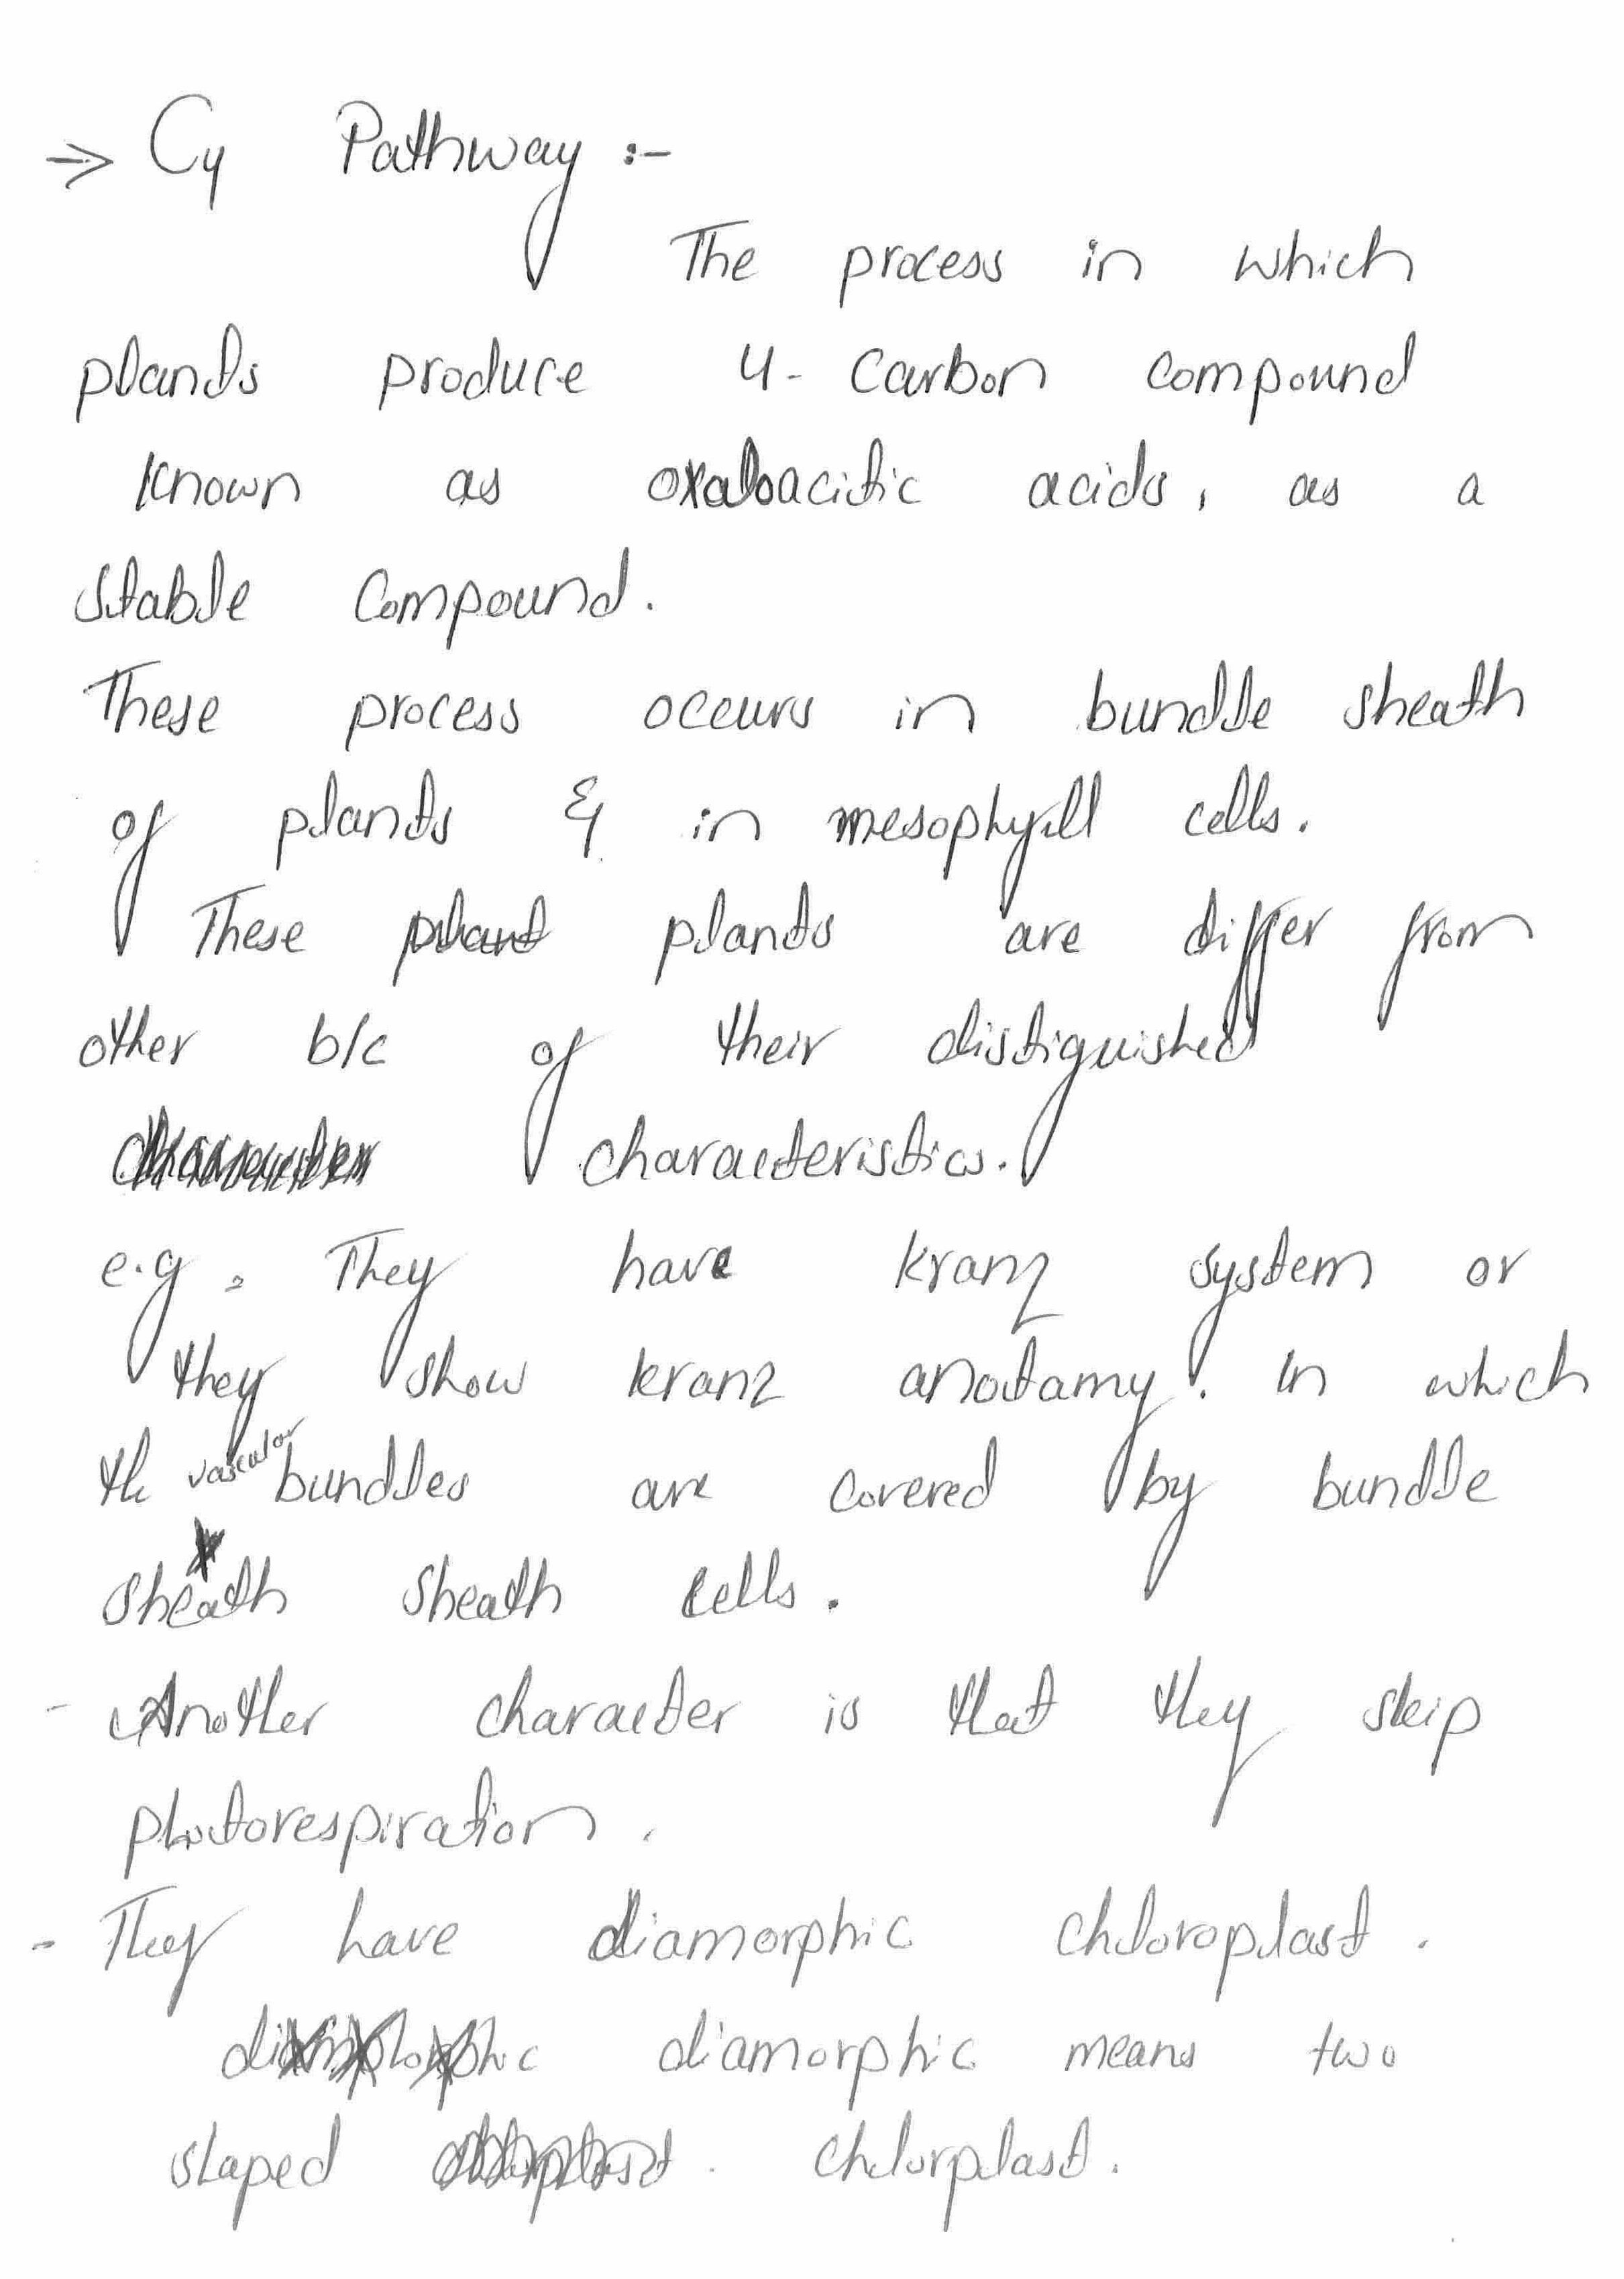 ⇒ C4 Pathway :-
The process in which
plants produce 4- Carbon compound
known as oxaloacitic acids, as a
stable Compound.
These process occurs in bundle sheath
of plants & in mesophyll cells.
These plant plants are differ from
other b/c of their distiguished
characteristics.
e.g. They have kranz system or
they show kranz anotamy. In which
th vascular bundles are covered by bundle
sheath sheath cells.
- Another character is that they skip
photorespiration.
- They have diamorphic chloroplast.
diamorphic means two
shaped chlorplast.